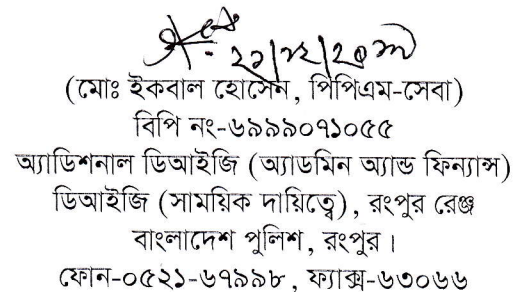 (মোঃ ইকবাল হোসেন, পিপিএম-সেবা)
বিপি নং-৬৯৯৯০৭১০৫৫
অ্যাডিশনাল ডিআইজি (অ্যাডমিন অ্যান্ড ফিন্যান্স)
ডিআইজি (সাময়িক দায়িত্বে), রংপুর রেঞ্জ
বাংলাদেশ পুলিশ, রংপুর।
ফোন-০৫২১-৬৭৯৯৮, ফ্যাক্স-৬৩০৬৬